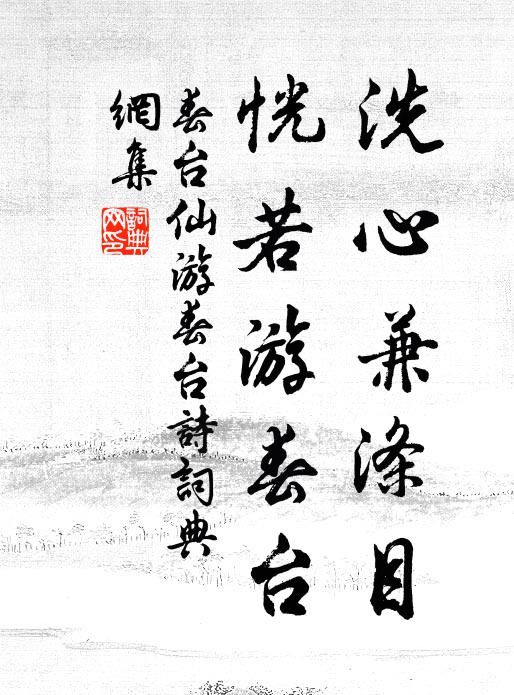 洗心兼滌目
恍若游春台
春台仙游春台詩詞典
網集
詞典
网印